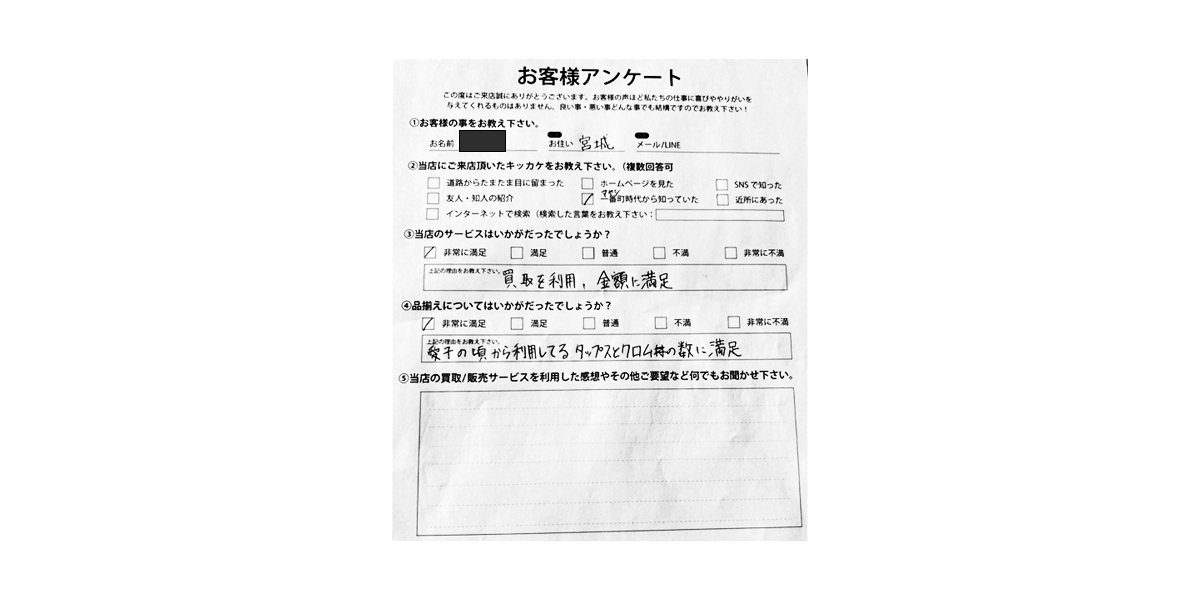 お客様アンケート
この度はご来店誠にありがとうございます。お客様の声ほど私たちの仕事に喜びややりがいを
与えてくれるものはありません。良い事・悪い事どんな事でも結構ですのでお教え下さい!
①お客様の事をお教え下さい。
お名前 お住い 宮城 メール/LINE
②当店にご来店頂いたキッカケをお教え下さい。(複数回答可
道路からたまたま目に留まった ホームページを見た SNSで知った
友人・知人の紹介 一番町時代から知っていた 近所にあった
インターネットで検索(検索した言葉をお教え下さい:
③当店のサービスはいかがだったでしょうか?
非常に満足 満足 普通 不満 非常に不満
上記の理由をお教え下さい。 買取を利用、金額に満足
④品揃えについてはいかがだったでしょうか?
非常に満足 満足 普通 不満 非常に不満
上記の理由をお教え下さい。
の頃から利用してる タップスとクロム の数に満足
⑤当店の買取/販売サービスを利用した感想やその他ご要望など何でもお聞かせ下さい。